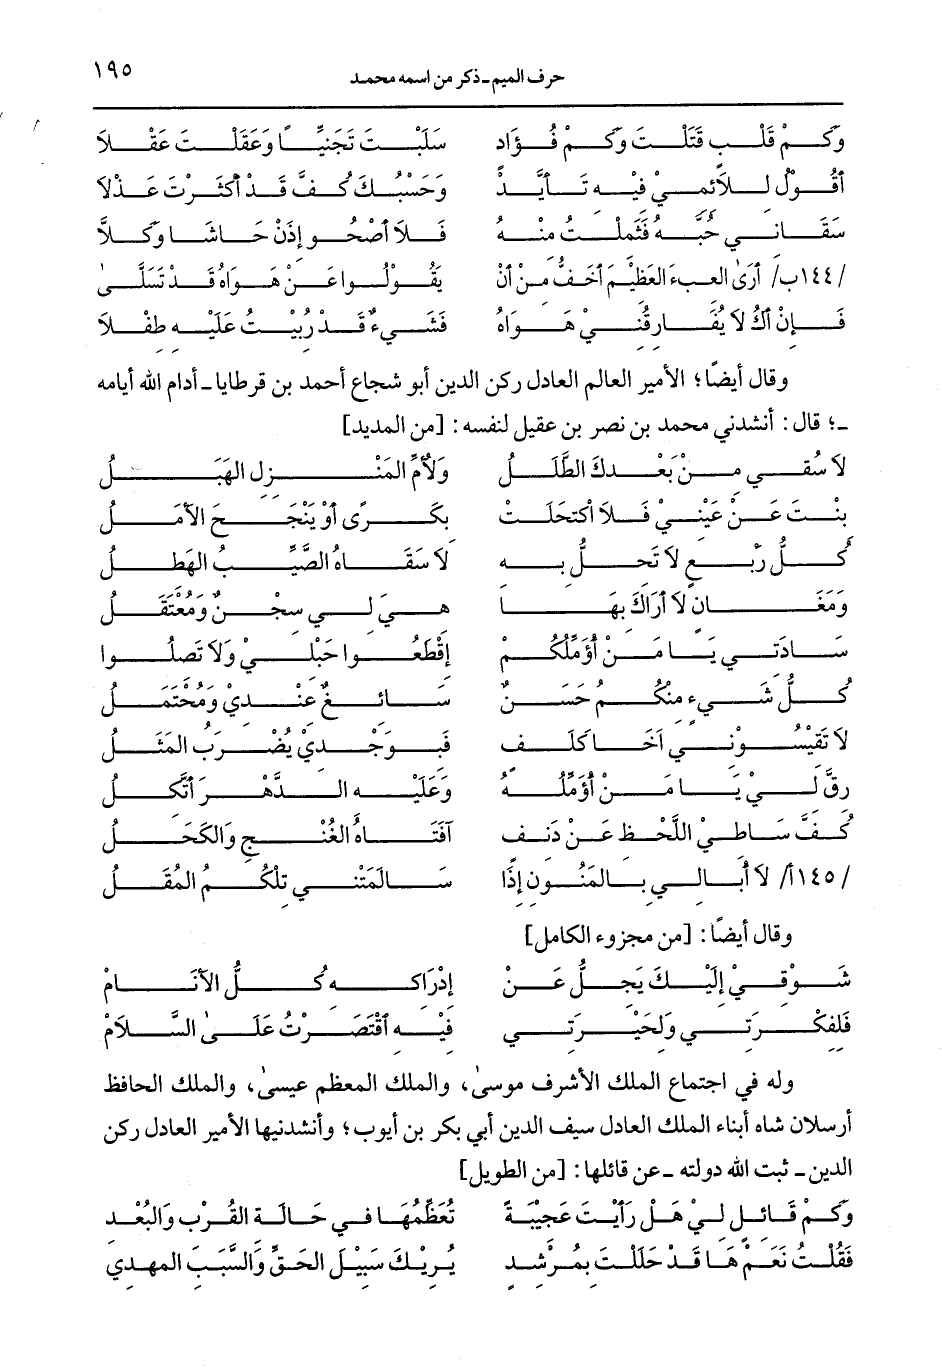 ١٩٥ حرف الميم ـ ذكر من اسمه محمد
وَكَمْ قَلْبٍ قَتَلْتَ وَكَمْ فُؤَادٍ سَلَبْتَ تَجَنِّيًا وَعَقَلْتَ عَقْلاَ
أَقُوْلُ لِلاَئِمِيْ فِيْهِ تَأَيَّدْ وَحَسْبُكَ كُفَّ قَدْ أَكْثَرْتَ عَذْلاَ
سَقَانِي حُبُّهُ فَثَمِلْتُ مِنْهُ فَلاَ أَصْحُو إِذَنْ حَاشَا وَكَلاَّ
/١٤٤ب/ أَرَىٰ العِبءَ العَظِيْمَ أَخَفُّ مِنْ أَنْ يَقُوْلُوا عَنْ هَوَاهُ قَدْ تَسَلَّىٰ
فَإِنْ أَكُ لاَ يُفَارِقُنِيْ هَوَاهُ فَشَيءٌ قَدْ رُبِيْتُ عَلَيْهِ طِفْلاَ
وقال أيضًا؛ الأمير العالم العادل ركن الدين أبو شجاع أحمد بن قرطايا ـ أدام الله أيامه
ـ؛ قال: أنشدني محمد بن نصر بن عقيل لنفسه: [من المديد]
لاَ سُقِي مِنْ بَعْدِكَ الطَّلَلُ وَلأُمِّ المَنْزِلِ الهَبَلُ
بِنْتَ عَنْ عَيْنِيْ فَلاَ أكْتَحَلَتْ بِكَرًى أَوْ يَنْجَحَ الأَمَلُ
كُلُّ رَبْعٍ لاَ تَحُلُّ بِهِ لاَ سَقَاهُ الصَّيِّبُ الهَطِلُ
وَمَغَانٍ لاَ أَرَاكَ بِهَا هِيَ لِي سِجْنٌ وَمُعْتَقَلُ
سَادَتِي يَا مَنْ أُؤَمِّلُكُمْ إِقْطَعُوا حَبْلِيْ وَلاَ تَصِلُوا
كُلُّ شَيءٍ مِنْكُمُ حَسَنٌ سَائِغٌ عِنْدِيْ وَمُحْتَمَلُ
لاَ تَقِيْسُوْنِي أَخَا كَلَفٍ فَبِوَجْدِيْ يُضْرَبُ المَثَلُ
رِقَّ لِيْ يَا مَنْ أُؤَمِّلُهُ وَعَلَيْهِ الدَّهْرَ أَتَّكِلُ
كُفَّ سَاطِيْ اللَّحْظِ عَنْ دَنِفٍ آفَتَاهُ الغُنْجُ وَالكَحَلُ
/١٤٥أ/ لاَ أُبَالِي بِالمَنُونِ إِذَا سَالَمَتْنِي تِلْكُمُ المُقَلُ
وقال أيضًا: [من مجزوء الكامل]
شَوْقِيْ إِلَيْكَ يَجِلُّ عَنْ إِدْرَاكِهِ كُلُّ الأَنَامْ
فَلِفِكْرَتِي وَلِحَيْرَتِي فِيْهِ أقْتَصَرْتُ عَلَىٰ السَّلاَمْ
وله في اجتماع الملك الأشرف موسىٰ، والملك المعظم عيسىٰ، والملك الحافظ
أرسلان شاه أبناء الملك العادل سيف الدين أبي بكر بن أيوب؛ وأنشدنيها الأمير العادل ركن
الدين ـ ثبت الله دولته ـ عن قائلها: [من الطويل]
وَكَمْ قَائِلٍ لِيْ هَلْ رَأَيْتَ عَجِيْبَةً تُعَظِّمُهَا فِي حَالَةِ القُرْبِ وَالبُعْدِ
فَقُلْتُ نَعَمْ هَا قَدْ حَلَلْتَ بِمُرْشِدٍ يُرِيْكَ سَبِيْلَ الحَقِّ وَالسَّبَبَ المهدِي